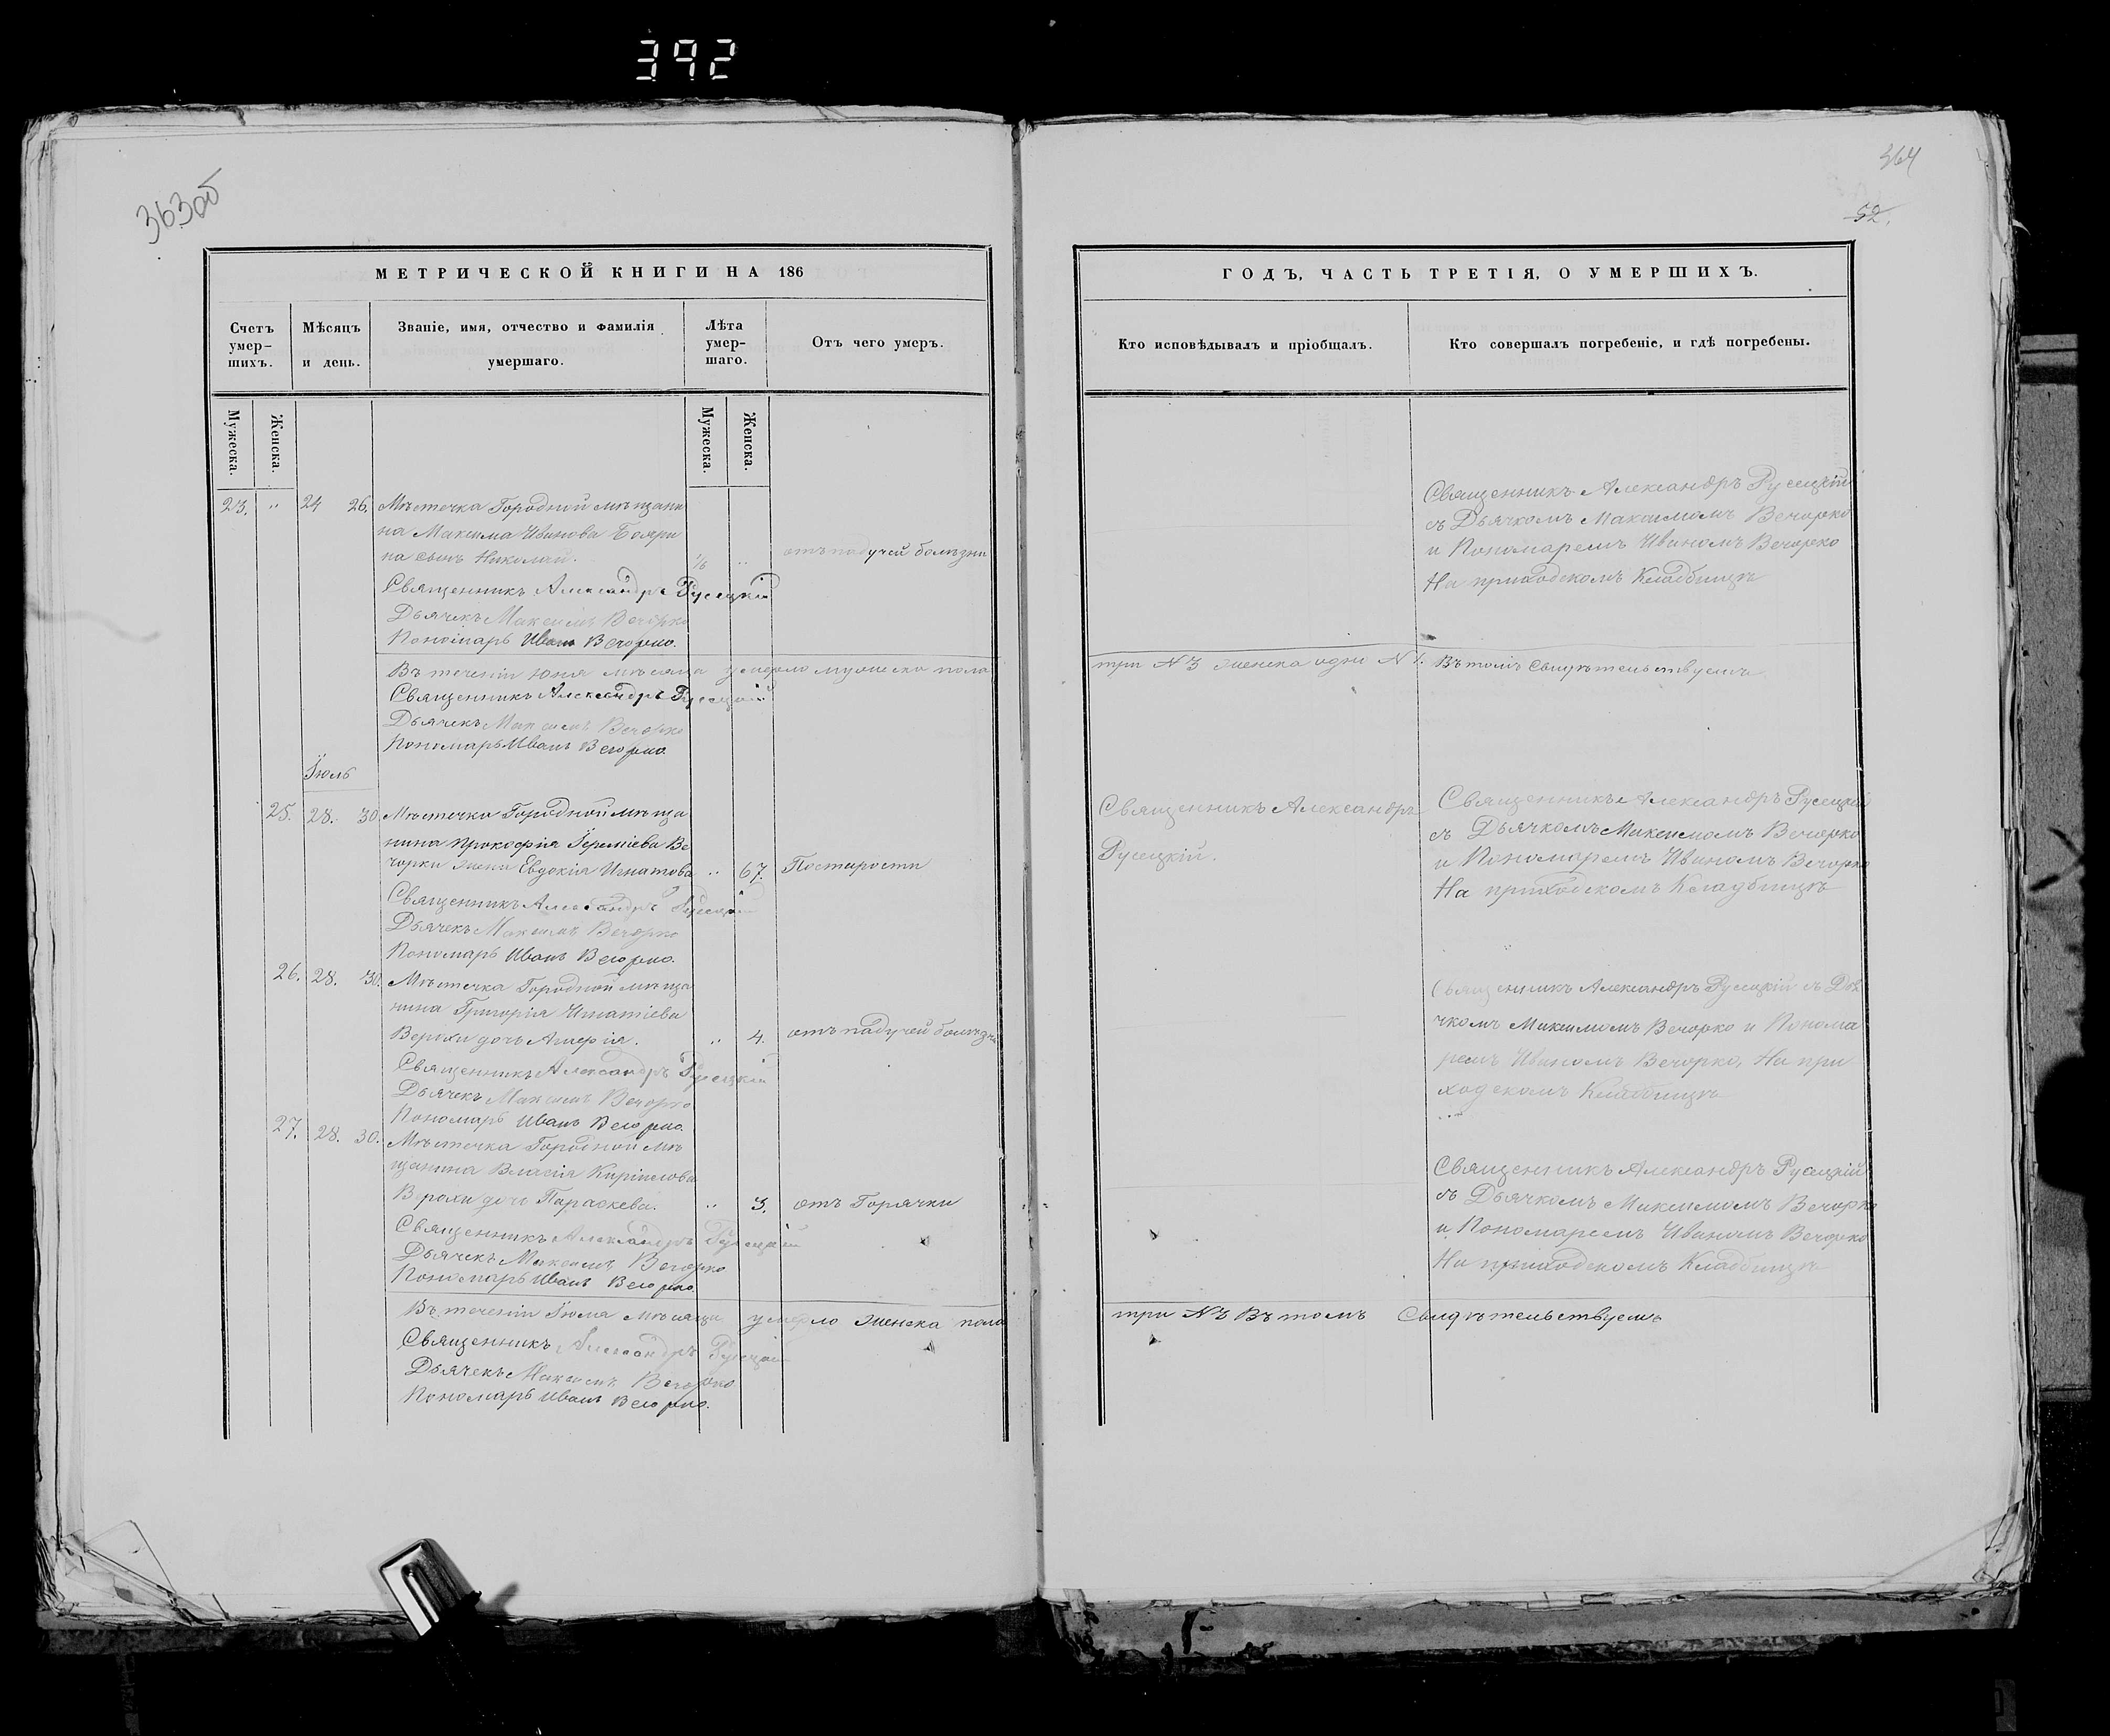 392
363об
364
52.
МЕТРИЧЕСКОЙ КНИГИ НА 186
Счетъ умер-шихъ.
Мѣсяцъ и день.
Званіе, имя, отчество и фамилія умершаго.
Лѣта умер-шаго.
Отъ чего умеръ.
Мужеска.
Женска.
Мужеска.
Женска.
23. " 24 26. Мѣстечка Городной мѣщани
на Максима Иванова Бояри
на сынъ Николай. 1/6 " отъ падучей болѣзни
Священникъ Александръ Русецкій
Дьячекъ Максимъ Вечорко
Пономарь Иванъ Вечорко.
Въ теченіи Юня мѣсяца умерло мужеска пола
Священникъ Александръ Русецкій
Дьячекъ Максимъ Вечорко
Пономарь Иванъ Вечорко.
Іюль
25. 28. 30. Мѣстечка Городной мѣща
нина Прокофія Іереміева Ве
чорки жена Евдокія Игнатова " 67. По старости
Священникъ Александръ Русецкій
Дьячекъ Максимъ Вечорко
Пономарь Иванъ Вечорко.
26. 28. 30. Мѣстечка Городной мѣща
нина Григорія Игнатіева
дочь " 4. отъ падучей болѣзни
Священникъ Александръ Русецкій
Дьячекъ Максимъ Вечорко
Пономарь Иванъ Вечорко.
27. 28. 30. Мѣстечка Городной мѣ
щанина Власія Кирилова
дочь Параскева. " 3. отъ Горячки
Священникъ Александръ Русецкій
Дьячекъ Максимъ Вечорко
Пономарь Иванъ Вечорко.
Въ теченіи Іюля мѣсяца умерло женска пола
Священникъ Александръ Русецкій
Дьячекъ Максимъ Вечорко
Пономарь Иванъ Вечорко.
ГОДЪ, ЧАСТЬ ТРЕТІЯ, О УМЕРШИХЪ.
Кто исповѣдывалъ и пріобщалъ.
Кто совершалъ погребеніе, и гдѣ погребены.
Священникъ Александръ Русецкій
съ Дьячкомъ Максимомъ Вечорко
и Пономаремъ Иваномъ Вечорко
На приходскомъ Кладбищѣ
три №3 женска одна №1. Въ томъ свидѣтельствуемъ
Священникъ Александръ
Русецкій.
Священникъ Александръ Русецкій
съ Дьячкомъ Максимомъ Вечорко
и Пономаремъ Иваномъ Вечорко
На приходскомъ Кладбищѣ
Священникъ Александръ Русецкій съ Дья
чкомъ Максимомъ Вечорко и Понома
ремъ Иваномъ Вечорко, На при
ходскомъ Кладбищѣ
Священникъ Александръ Русецкій
съ Дьячкомъ Максимомъ Вечорко
и Пономаремъ Иваномъ Вечорко
На приходскомъ Кладбищѣ
три №3 Въ томъ Свидѣтельствуемъ